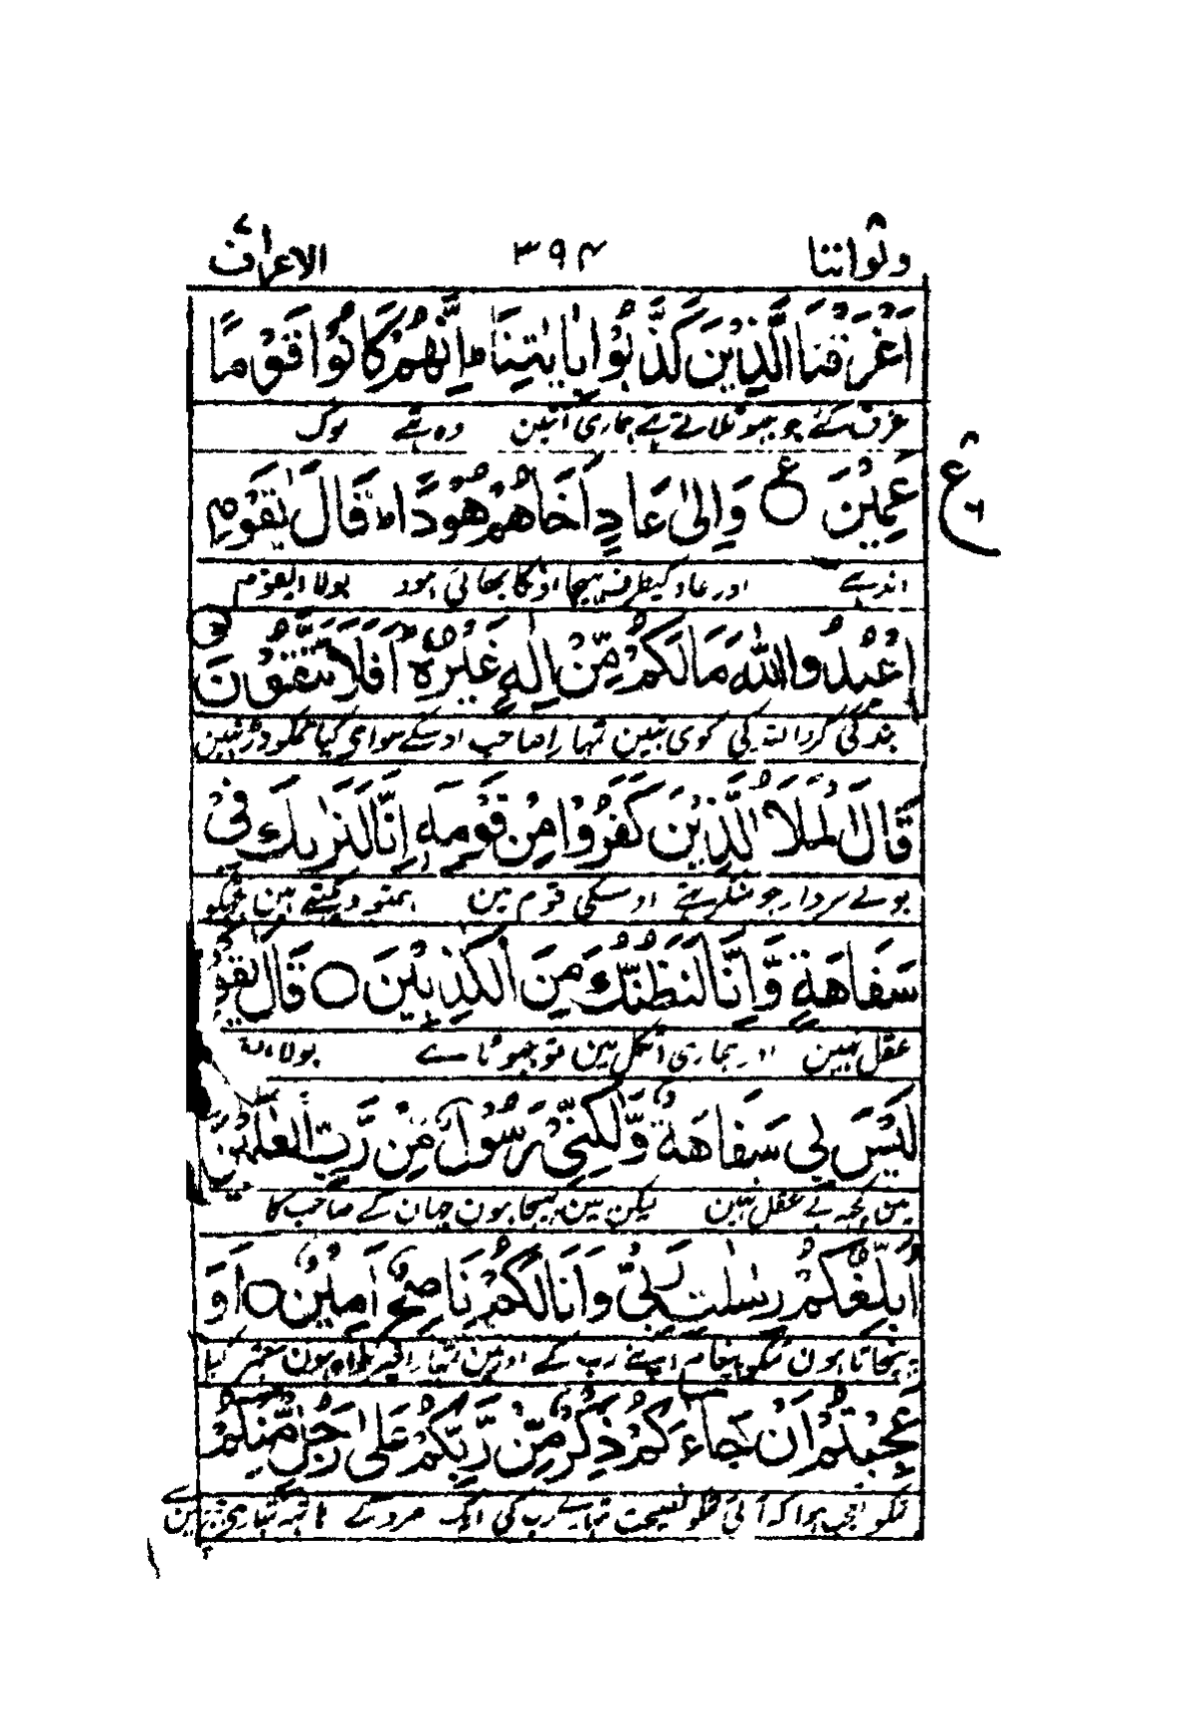 ولواننا ۸ ۳۹۴ الاعراف ۷
اَغْرَقْنَا الَّذِیْنَ كَذَّبُوْا بِاٰیٰتِنَا ط اِنَّهُمْ كَانُوْا قَوْمًا
غرق کئے جو جھوٹلاتے تھے ہماری آیتین وہ تھے لوگ
عَمِیْنَ ○ ع وَاِلٰی عَادٍ اَخَاهُمْ هُوْدًا ط قَالَ یٰقَوْمِ
اندھے اور عاد کیطرف بھیجا اونکا بھائی ہود بولا ای قوم
اعْبُدُوا اللّٰهَ مَا لَكُمْ مِّنْ اِلٰهٍ غَیْرُهٗ ط اَفَلَا تَتَّقُوْنَ ○
بندگی کرو اللہ کی کوی نہین تمہارا صاحب اوسکے سوای کیا تمکو ڈر نہین
قَالَ الْمَلَاُ الَّذِیْنَ كَفَرُوْا مِنْ قَوْمِهٖ اِنَّا لَنَرٰىكَ فِیْ
بولے سردار جو منکر تھے اوسکی قوم مین ہمتو دیکھتے ہین تجھکو
سَفَاهَةٍ وَّاِنَّا لَنَظُنُّكَ مِنَ الْكٰذِبِیْنَ ○ قَالَ یٰقَوْ
عقل نہین اور ہماری اٹکل مین تو جھوٹا ہے بولا
لَیْسَ بِیْ سَفَاهَةٌ وَّلٰكِنِّیْ رَسُوْلٌ مِّنْ رَّبِّ الْعٰلَمِیْنَ
مین کچھ بے عقل نہین لیکن مین بھیجا ہون جہان کے صاحب کا
اُبَلِّغُكُمْ رِسٰلٰتِ رَبِّیْ وَاَنَا لَكُمْ نَاصِحٌ اَمِیْنٌ ○ اَوَ
پہنچاتا ہون تمکو پیغام اپنے رب کے اور مین تمہارا خیرخواہ ہون معتبر کیا
عَجِبْتُمْ اَنْ جَآءَكُمْ ذِكْرٌ مِّنْ رَّبِّكُمْ عَلٰی رَجُلٍ مِّنْكُمْ
تمکو تعجب ہوا کہ آئی تمکو نصیحت تمہارے رب کی ایک مرد کے ہاتھ تمہاری